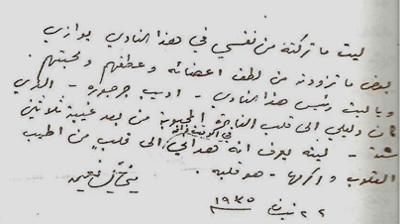 ليت ما تركته من نفسي في هذا النادي يوازي
بعض ما تزودته من لطف اعضائه وعطفهم ومحبتهم.
ويا ليت رئيس هذا النادي - اديب فرحوره - الذي
كان دليلي الى قلب الناصرة المحبوبة من بعد غيبة ثلاثين
سنة - ليته يعرف انه هداني في الوقت ذاته الى قلب من اطيب
القلوب واكرمها - هو قلبه.
ميخائيل نعيمه
٢٢ نيسان ١٩٣٥